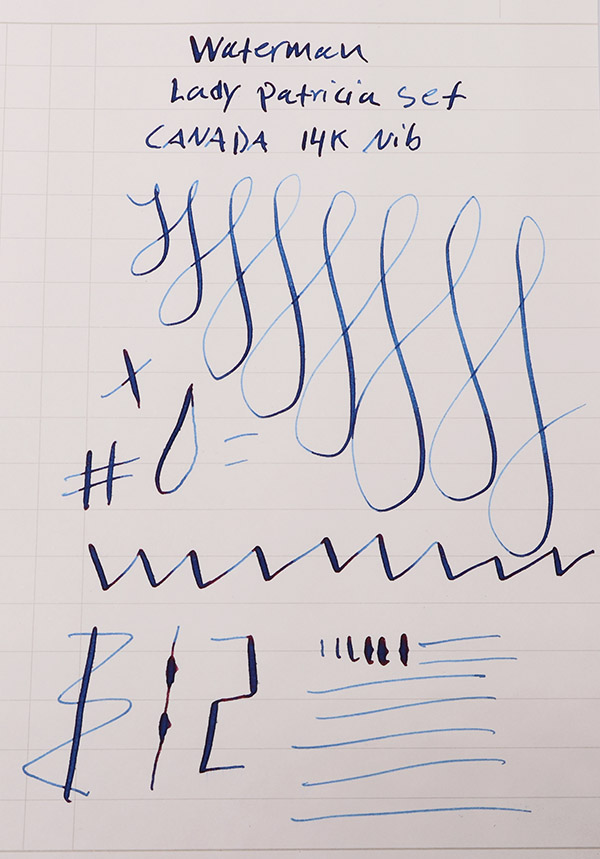 Waterman
Lady Patricia set
CANADA 14K Nib
x
# =